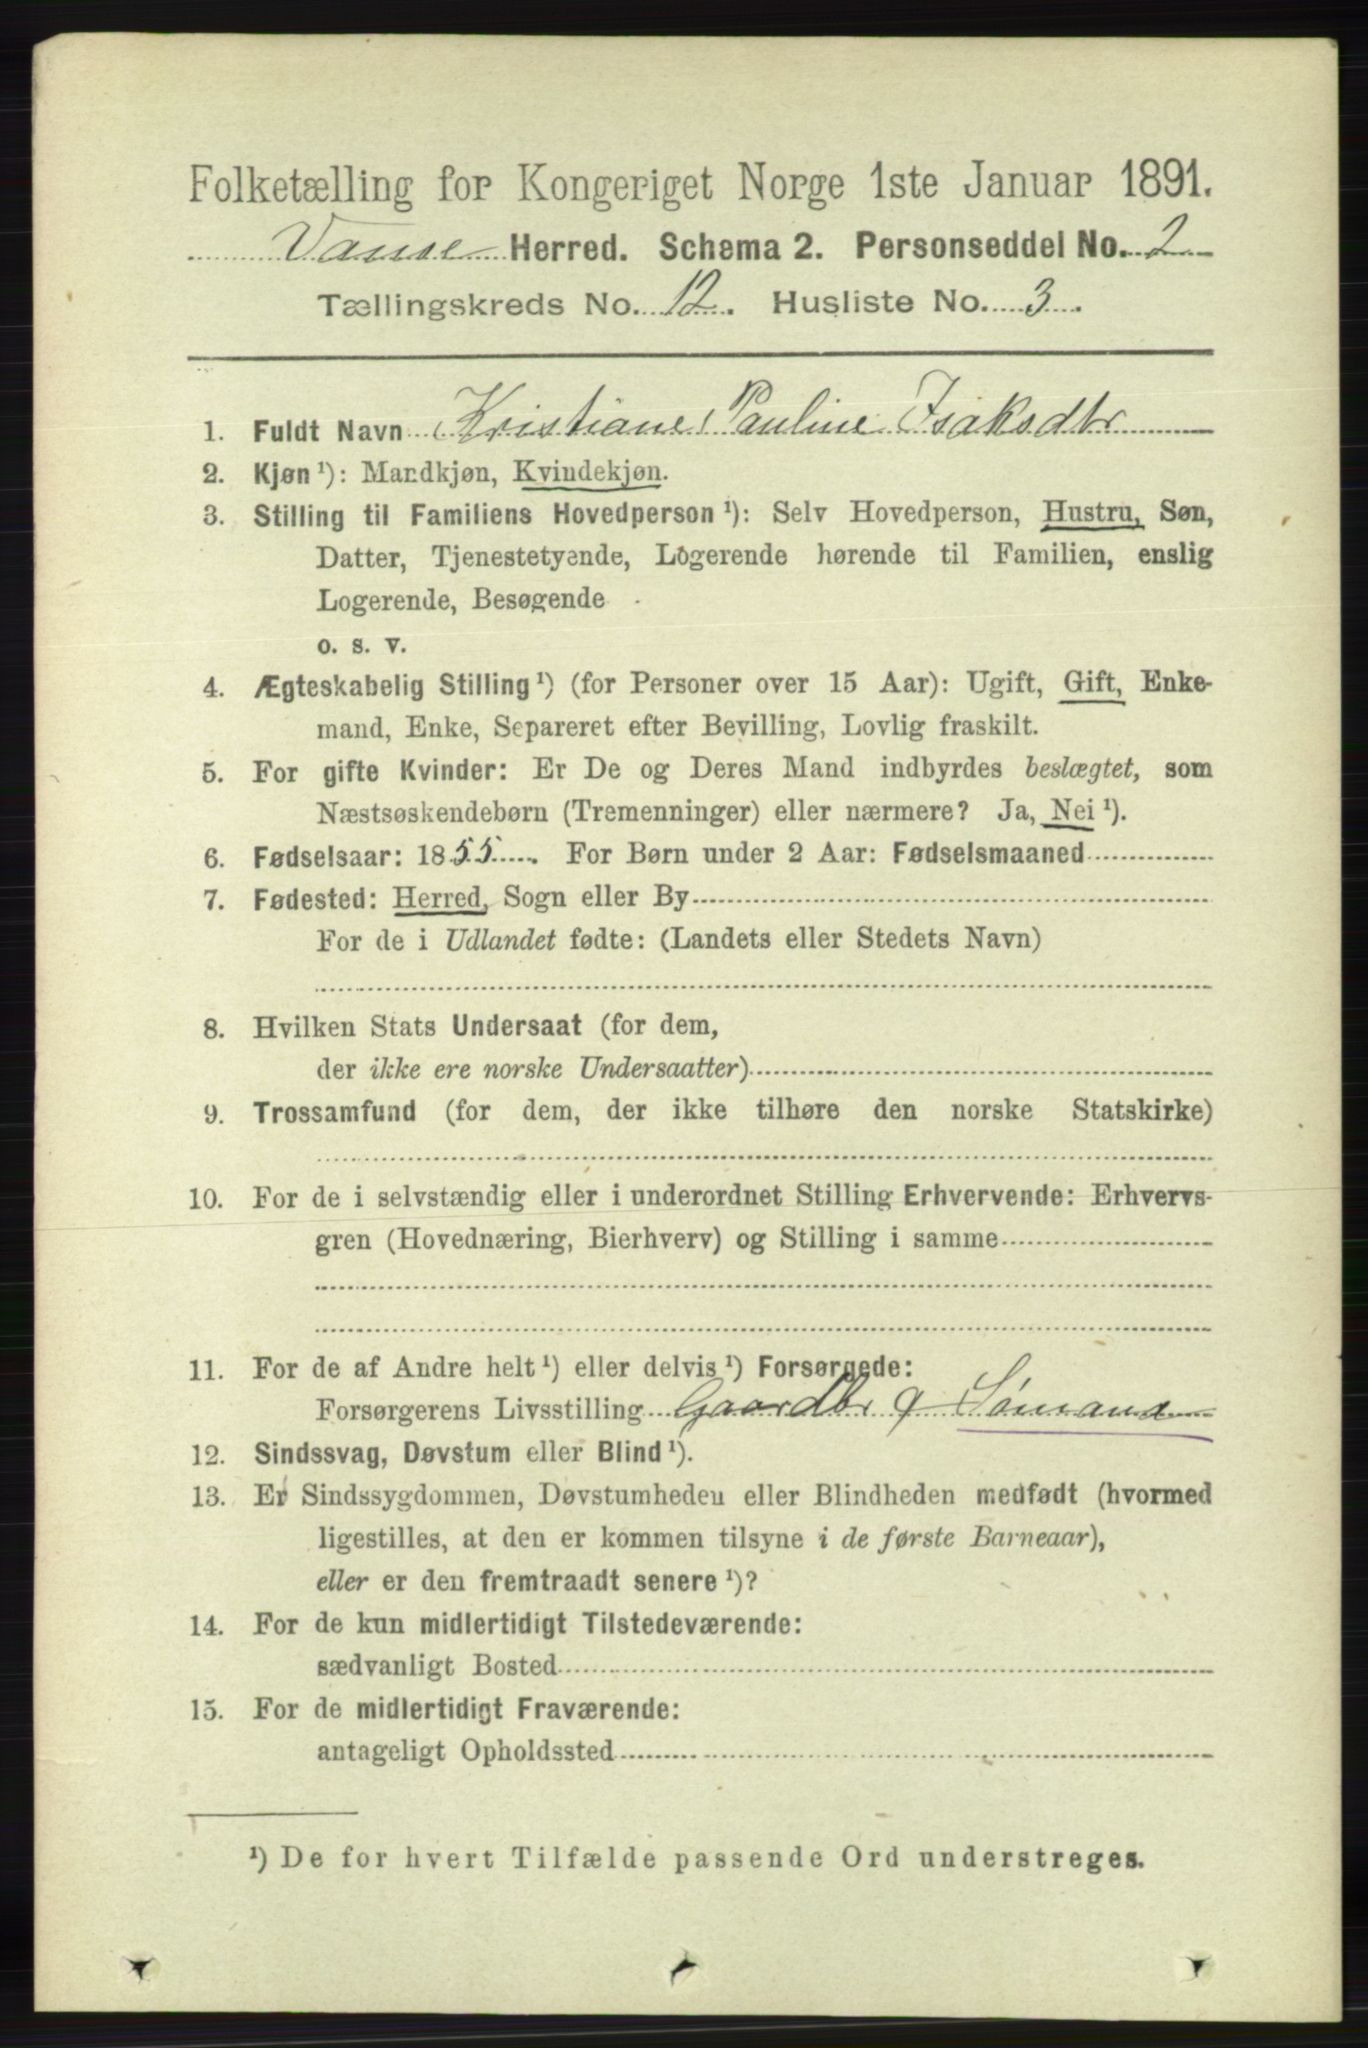 Folketælling for Kongeriget Norge 1ste Januar 1891.
Vanse Herred. Schema 2. Personseddel No. 2
Tællingskreds No. 12. Husliste No. 3.
1. Fuldt Navn Kristiane Pauline Isaksdtr
2. Kjøn ¹): Mandkjøn, Kvindekjøn.
3. Stilling til Familiens Hovedperson ¹): Selv Hovedperson, Hustru, Søn,
Datter, Tjenestetyende, Logerende hørende til Familien, enslig
Logerende, Besøgende
o. s. v.
4. Ægteskabelig Stilling ¹) (for Personer over 15 Aar): Ugift, Gift, Enke-
mand, Enke, Separeret efter Bevilling, Lovlig fraskilt.
5. For gifte Kvinder: Er De og Deres Mand indbyrdes beslægtet, som
Næstsøskendebørn (Tremenninger) eller nærmere? Ja, Nei ¹).
6. Fødselsaar: 1855. For Børn under 2 Aar: Fødselsmaaned
7. Fødested: Herred, Sogn eller By
For de i Udlandet fødte: (Landets eller Stedets Navn)
8. Hvilken Stats Undersaat (for dem,
der ikke ere norske Undersaatter)
9. Trossamfund (for dem, der ikke tilhøre den norske Statskirke)
10. For de i selvstændig eller i underordnet Stilling Erhvervende: Erhvervs-
gren (Hovednæring, Bierhverv) og Stilling i samme
11. For de af Andre helt ¹) eller delvis ¹) Forsørgede:
Forsørgerens Livsstilling Gaardbr g Sømand
12. Sindssvag, Døvstum eller Blind ¹).
13. Er Sindssygdommen, Døvstumheden eller Blindheden medfødt (hvormed
ligestilles, at den er kommen tilsyne i de første Barneaar),
eller er den fremtraadt senere ¹)?
14. For de kun midlertidigt Tilstedeværende:
sædvanligt Bosted
15. For de midlertidigt Fraværende:
antageligt Opholdssted
¹) De for hvert Tilfælde passende Ord understreges.